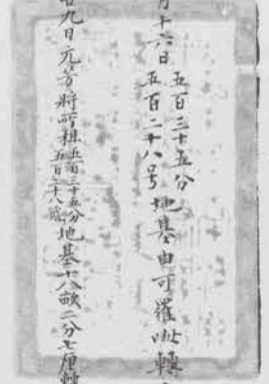 月十六日 五百三十五分 五百二十八号 地基由可羅㕸轉
九日元芳將所租 五百三十五分 五百二十八號 地基十八畝二分七厘轉